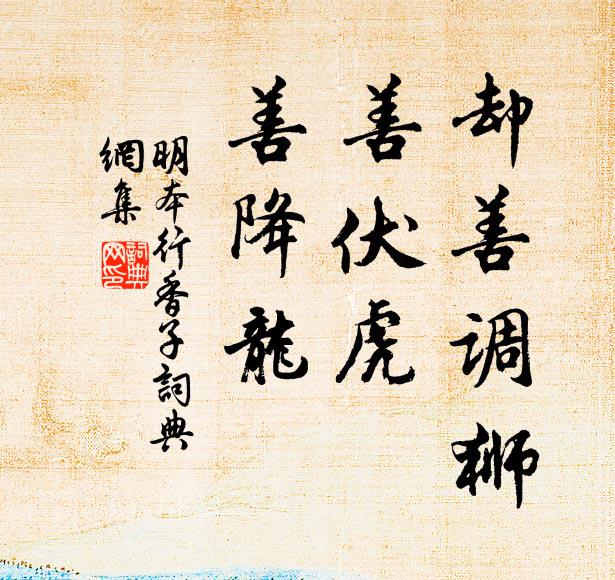 却善调狮
善伏虎
善降龍
明本行香子詞典
網集
詞典
网印